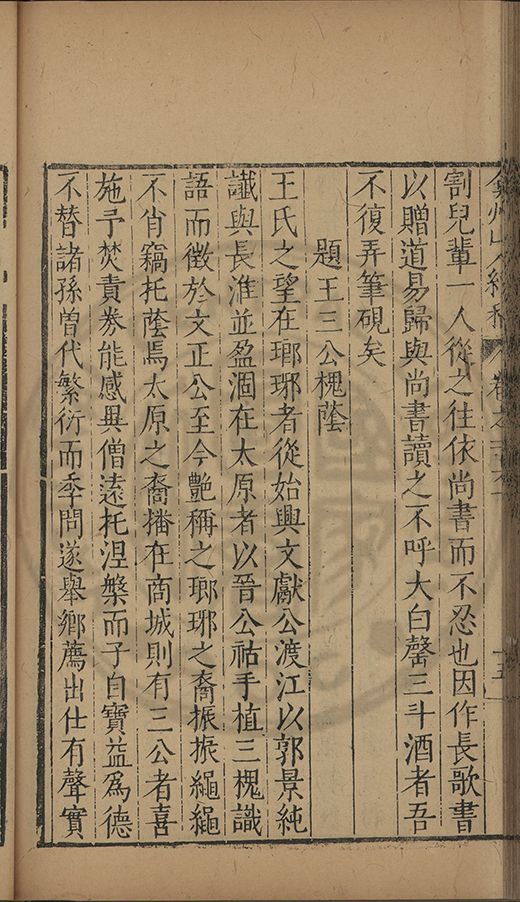 弇州山人續稿 卷之一百六十 十五
割兒輩一人從之往依尚書而不忍也因作長歌書
以贈道易歸與尚書讀之不呼大白罄三斗酒者吾
不復弄筆硯矣
題王三公槐蔭
王氏之望在瑯琊者從始興文獻公渡江以郭景純
讖與長淮並盈涸在太原者以晉公祜手植三槐識
語而徵於文正公至今艷稱之瑯琊之裔振振繩繩
不肖竊托蔭焉太原之裔播在商城則有三公者喜
施予焚責券能感異僧遠托涅槃而子自寶益為德
不替諸孫曾代繁衍而季問遂舉鄉薦出仕有聲實